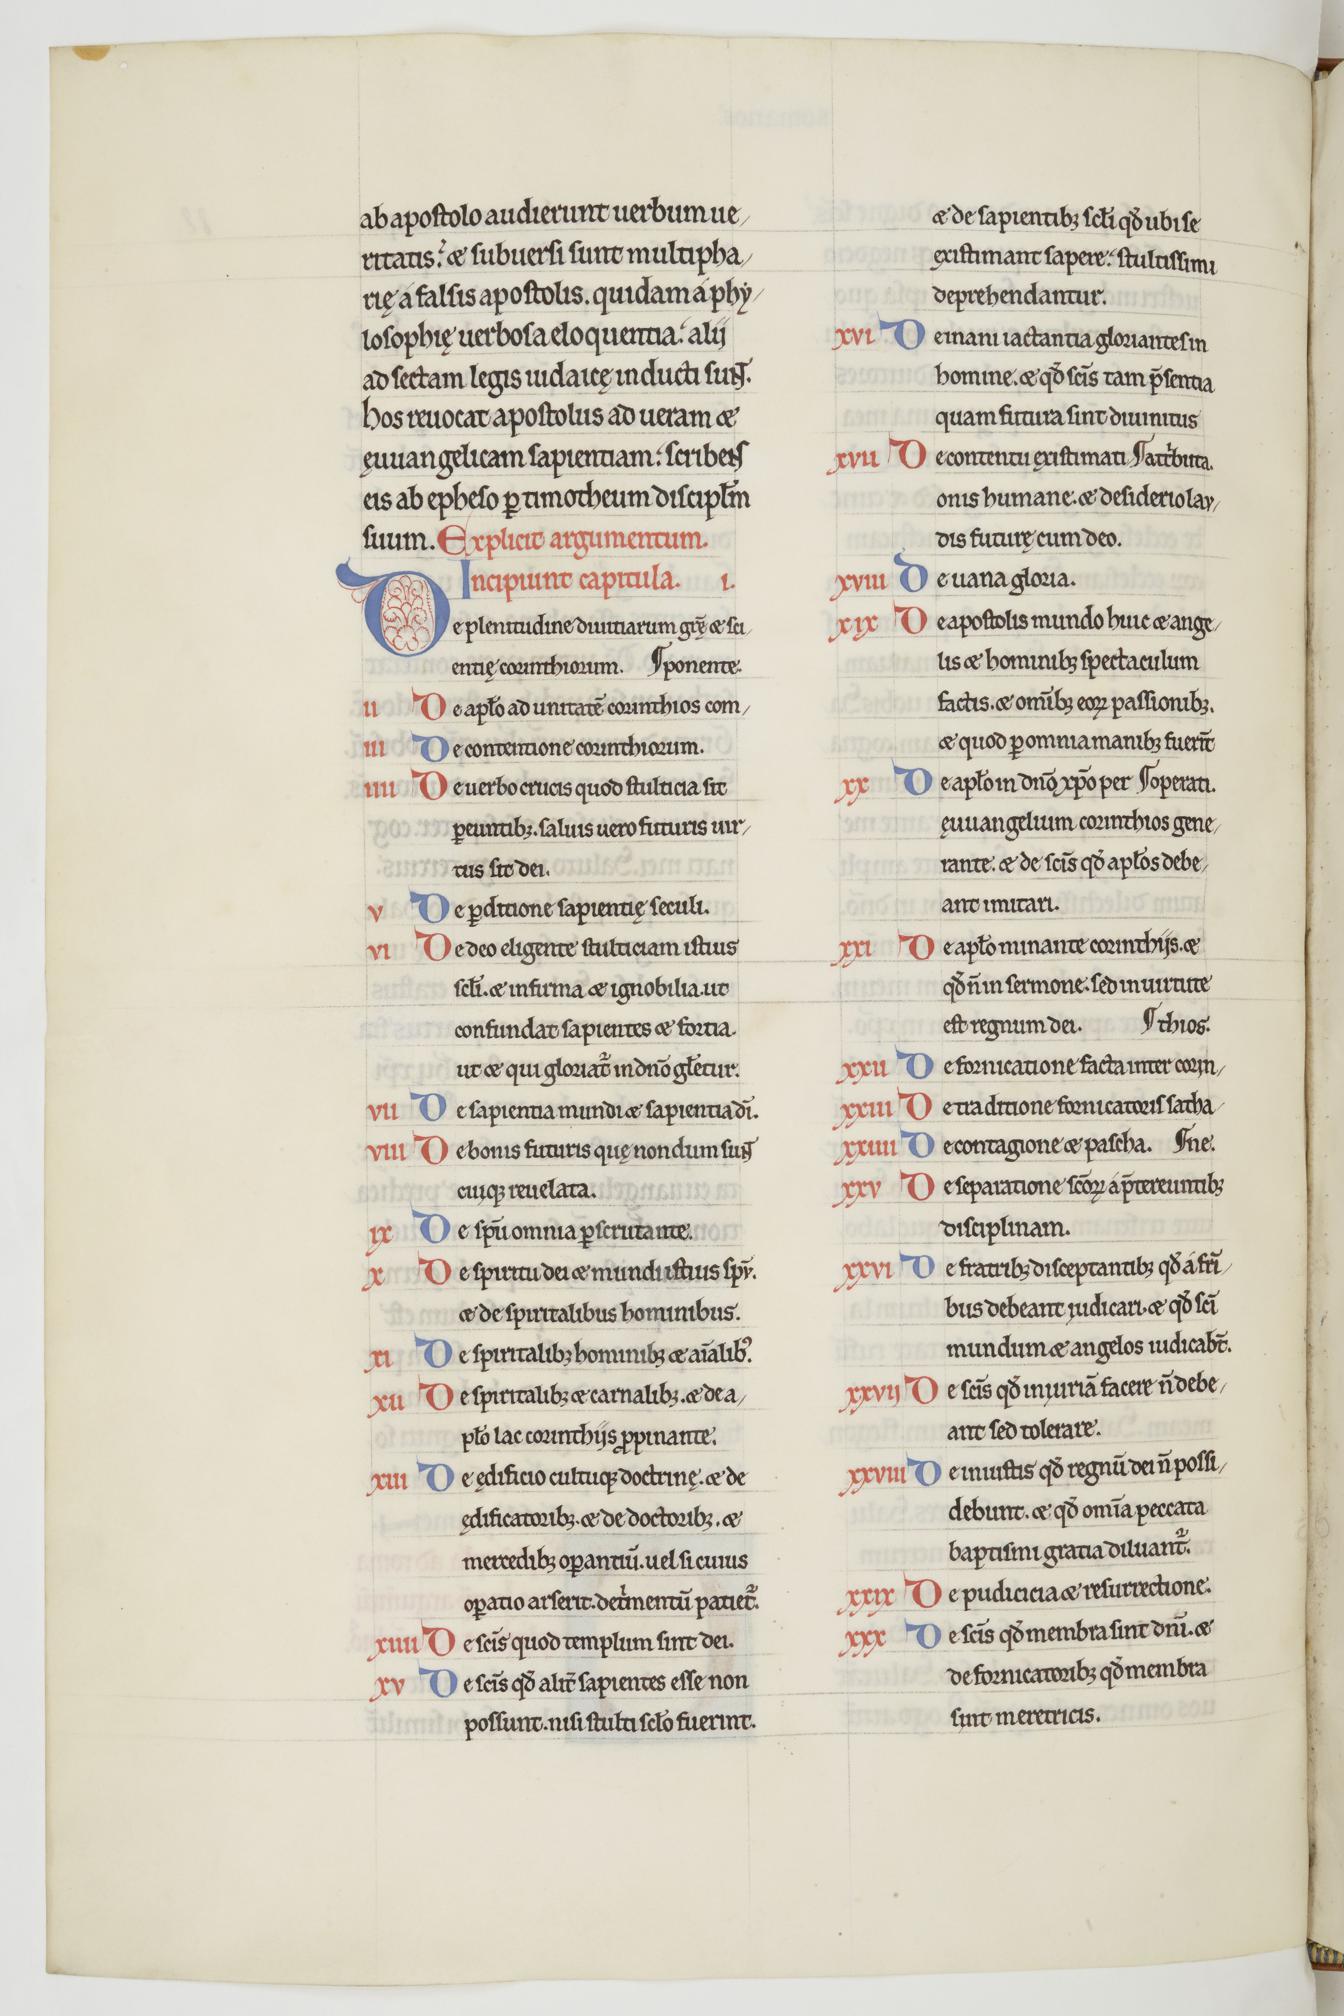 ab apostolo audierunt uerbum ue/
ritatis. & subuersi sunt multipha/
rię a falsis apostolis. quidam a phy/
losophię uerbosa eloquentia. alij
ad sectam legis iudaicę inducti sunt.
hos reuocat apostolus ad ueram &
ęuuangelicam sapientiam. scribens
eis ab epheso ꝑ timotheum discipłm
suum. Explicit argumentum.
Incipiunt capitula. i.
De plenitudine diuitiarum grę̄ & sci/
entię corinthiorum. ¶ponente.
ii De apło ad unitatē corinthios com/
iii De contentione corinthiorum.
iiii De uerbo crucis quod stulticia sit
ꝑeuntibꝫ. saluis uero futuris uir/
tus sit dei.
v De ꝑditione sapientię seculi.
vi De deo eligente stulticiam istius
scłi. & infirma & ignobilia. ut
confundat sapientes & fortia.
ut & qui gloriat᷑ in dnō głetur.
vii De sapientia mundi & sapientia dī.
viii De bonis futuris quę nondum sunt
cuiqꝫ reuelata.
ix De spū omnia ꝑscrutante.
x De spiritu dei & mundi istius spū.
& de spiritalibus hominibus.
xi De spiritalibꝫ hominibꝫ & aīalibꝰ.
xii De spiritalibꝫ & carnalibꝫ. & de a/
pło lac corinthijs ꝓpinante.
xiii De ędificio cultuqꝫ doctrinę. & de
ędificatoribꝫ. & de doctoribꝫ. &
mercedibꝫ oꝑantiū. uel si cuius
oꝑatio arserit. detͥmentū patiet᷑.
xiiii De scīs quod templum sint dei.
xv De scīs qđ alit̄ sapientes esse non
possunt. nisi stulti scło fuerint.
& de sapientibꝫ scłi qđ ubi se
existimant sapere. stultissimi
deprehendantur.
xvi De inani iactantia gloriantes in
homine. & qđ scīs tam p̄sentia
quam futura sint diuinitus
xvii De contentu ęxistimati ¶attͥbuta.
onis humane. & desiderio lau/
dis futurę cum deo.
xviii De uana gloria.
xix De apostolis mundo huic & ange/
lis & hominibꝫ spectaculum
factis. & omībꝫ eoꝝ passionibꝫ.
& quod ꝑ omnia manibꝫ fuerīt
xx De apło in dnō xp̄o per ¶operati.
ęuuangelium corinthios gene/
rante. & de scīs qđ apłos debe/
ant imitari.
xxi De apło minante corinthijs. &
qđ n̄ in sermone. sed in uirtute
est regnum dei. ¶thios.
xxii De fornicatione facta inter corin/
xxiii De traditione fornicatoris satha/
xxiiii De contagione & pascha. ¶ne.
xxv De separatione scōꝝ a p̄tereuntibꝫ
disciplinam.
xxvi De fratribꝫ disceptantibꝫ qđ a frī/
bus debeant iudicari. & qđ scī
mundum & angelos iudicabt̄.
xxvij De scīs qđ iniuriā facere n̄ debe/
ant sed tolerare.
xxviii De iniustis qđ regnū dei n̄ possi/
debunt. & qđ omīa peccata
baptismi gratia diluant᷑.
xxix De pudicicia & resurrectione.
xxx De scīs qđ membra sint dnī. &
de fornicatoribꝫ qđ membra
sint meretricis.